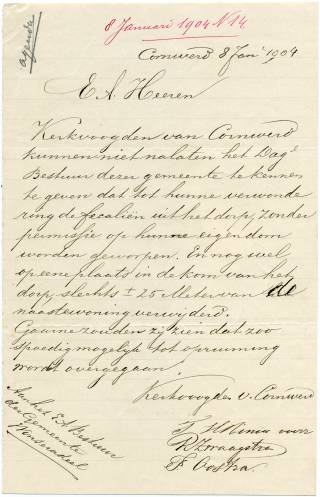 8 Januari 1904 N 14.
agenda
Cornwerd 8 Jan' 1904
E A. Heeren
Kerkvoogden van Cornwerd
kunnen niet nalaten het Dags
Bestuur dezer gemeente te kennen
te geven dat tot hunne verwonde
ring de fecaliën uit het dorp, zonder
permissie op hunne eigendom
worden geworpen. En nog wel
op eene plaats in de kom van het
dorp, slechts ± 25 Meter van de
naaste woning verwijderd.
Gaarne zouden zij zien dat zoo
spoedig mogelijk tot opruiming
wordt overgegaan.
Kerkvoogden v. Cornwerd
R Zwaagstra
F. Oostra.
Aan het E A Bestuur
der Gemeente
Wonseradeel